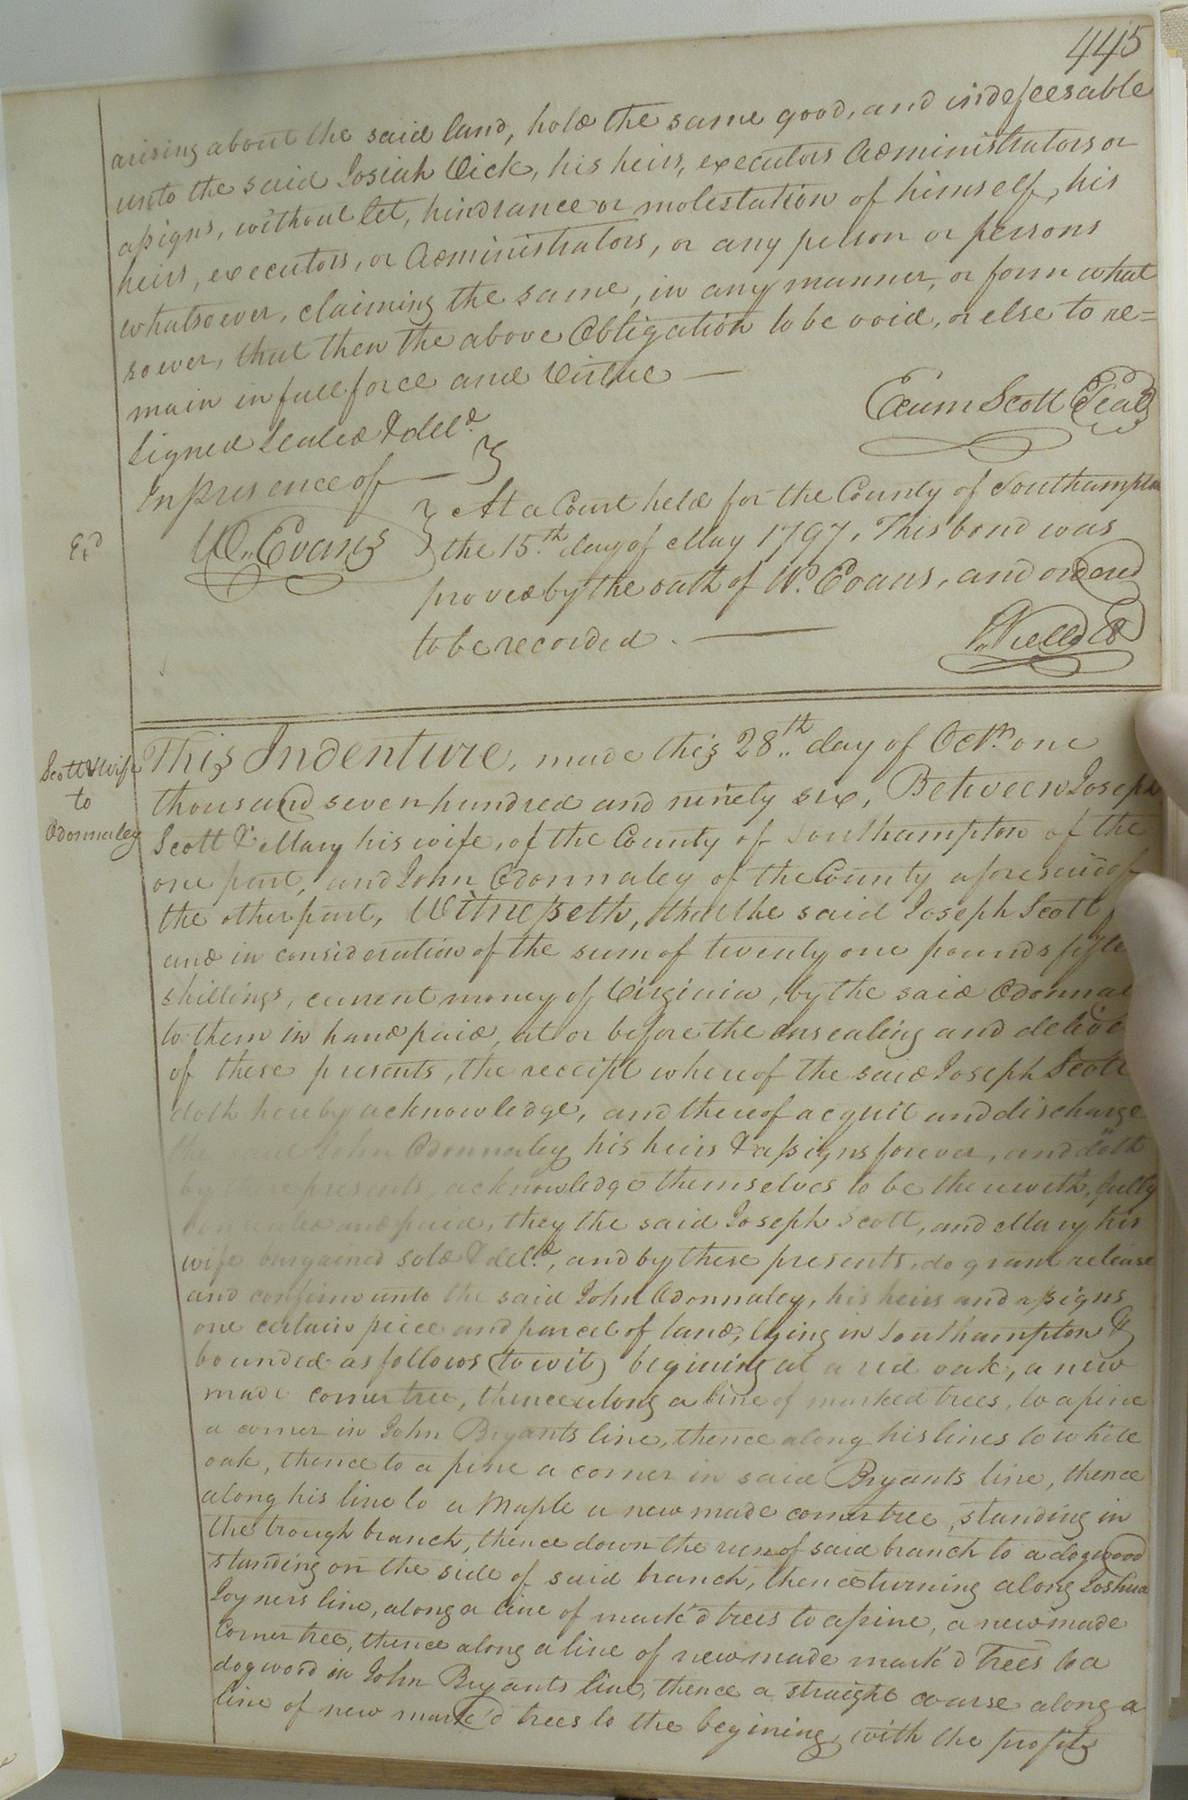 445
arising about the said land, hold the same good, and indefeesable
unto the said Josiah Vick, his heirs, executors Administrators or
assigns, without let, hindrance or molestation of himself, his
heirs, executors, or Administrators, or any person or persons
whatsoever, claiming the same, in any manner, or form what
soever, that then the above Obligation to be void, or else to re=
main in full force and Virtue —
Exum Scott Seal
Signed Sealed & deld.
In presence of —
Wm. Evans
Exd
At a Court held for the County of Southampton
the 15.th day of May 1797, This bond was
proved by the oath of Wm. Evans, and ordered
to be recorded. —
Scott & Wife
to
Odonnaley
This Indenture, made this 28th. day of Octr. one
thousand seven hundred and ninety six, Between Joseph
Scott & Mary his wife, of the County of Southampton of the
one part, and John Odonnaley of the County aforesaid of
the other part, Witnesseth, that the said Joseph Scott
and in consideration of the sum of twenty one pounds
shillings, current money of Virginia, by the said
to them in hand paid, at or before the ensealing and
of these presents, the receipt whereof the said Joseph Scott
doth hereby acknowledge, and thereof acquit and discharge
the said John Odonnaley his heirs & assigns forever, and doth
by these presents, acknowledge themselves to be therewith, fully
and paid, they the said Joseph Scott, and Mary his
wife bargained sold & deld., and by these presents, do grant release
and confirm unto the said John Odonnaley, his heirs and assigns
one certain piece and parcel of land, lying in Southampton &
bounded as follows (to wit) begining at a red oak, a new
made corner tree, thence along a line of marked trees, to a pine
a corner in John Bryants line, thence along his lines to white
oak, thence to a pine a corner in said Bryants line, thence
along his line to a Maple a new made corner tree, standing in
the trough branch, thence down the run of said branch to a dogwood
standing on the side of said branch, thence turning along Joshua
Joyners line, along a line of mark'd trees to a pine, a new made
Corner tree, thence along a line of new made mark'd Trees to a
dogwood in John Bryants line, thence a straight coarse along a
line of new mark'd trees to the begining, with the profits